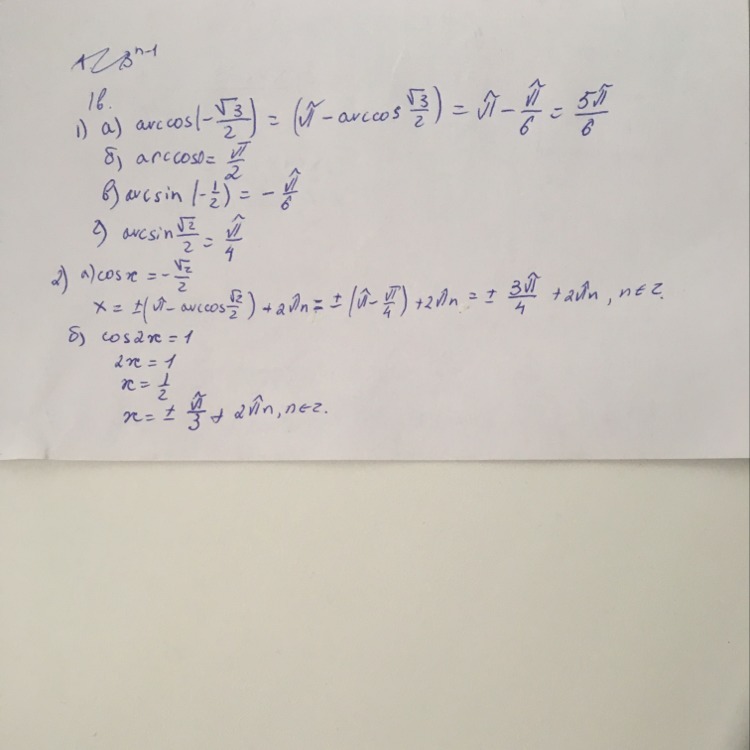 1в.
1) а) arccos(-√3/2) = (π - arccos √3/2) = π - π/6 = 5π/6
б) arccos0 = π/2
в) arcsin (-1/2) = - π/6
г) arcsin √2/2 = π/4
2) а) cos x = - √2/2
x = ±(π - arccos √2/2) + 2πn = ± (π - π/4) + 2πn = ± 3π/4 + 2πn, n∈z.
б) cos2x = 1
2x = 1
x = 1/2
x = ± π/3 + 2πn, n∈z.